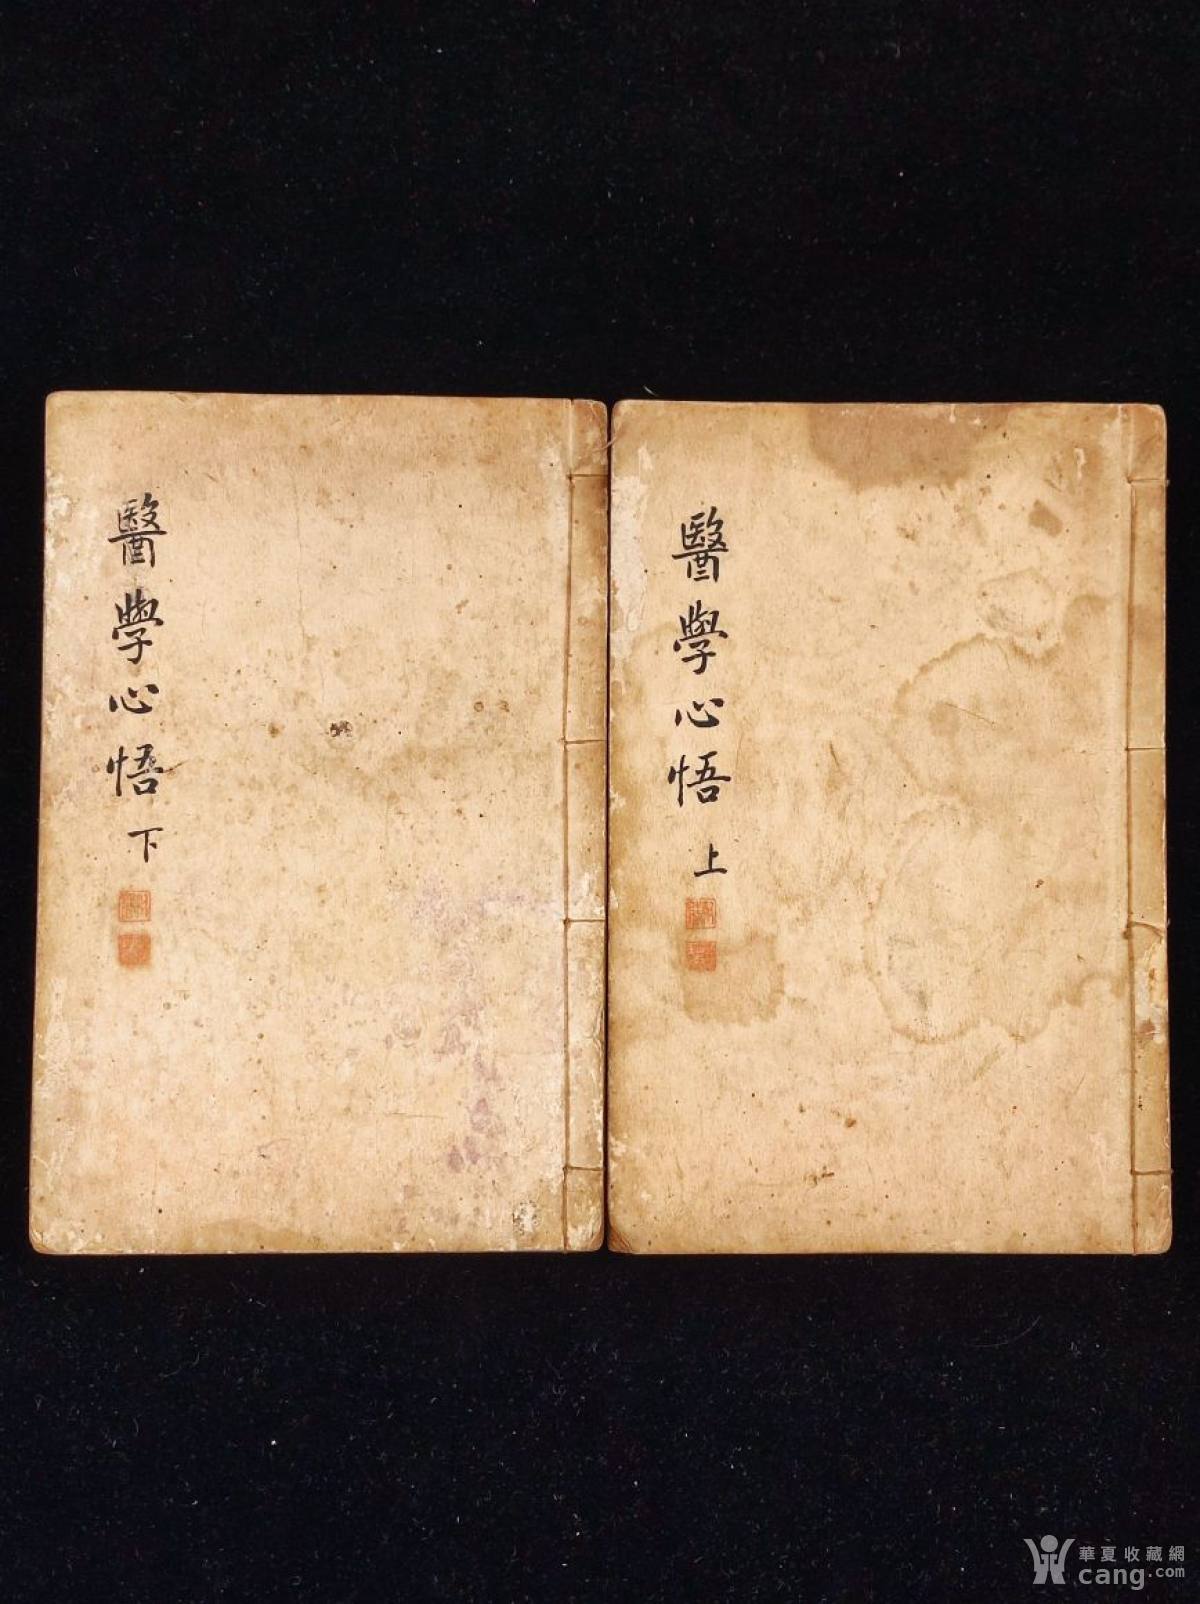 醫學心悟 上
醫學心悟 下
華夏收藏網
cang.com